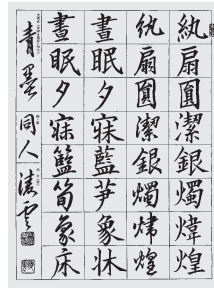 紈扇圓潔銀燭煒煌
紈扇圓潔銀燭煒煌
晝眠夕寐藍笋象牀
晝眠夕寐籃筍象床
青墨同人